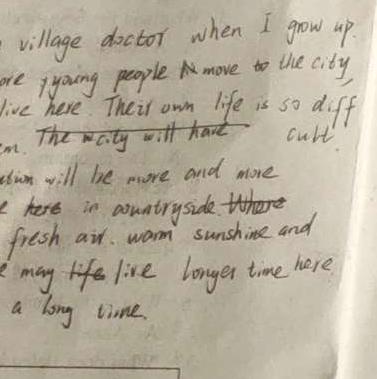 village doctor when I grow up.
ore young people move to the city,
live here. Their own life is so diff
em. The city will have cult
will be more and more
e here in countryside. Where
fresh air. warm sunshine and
e may life live longer time here
a long time.